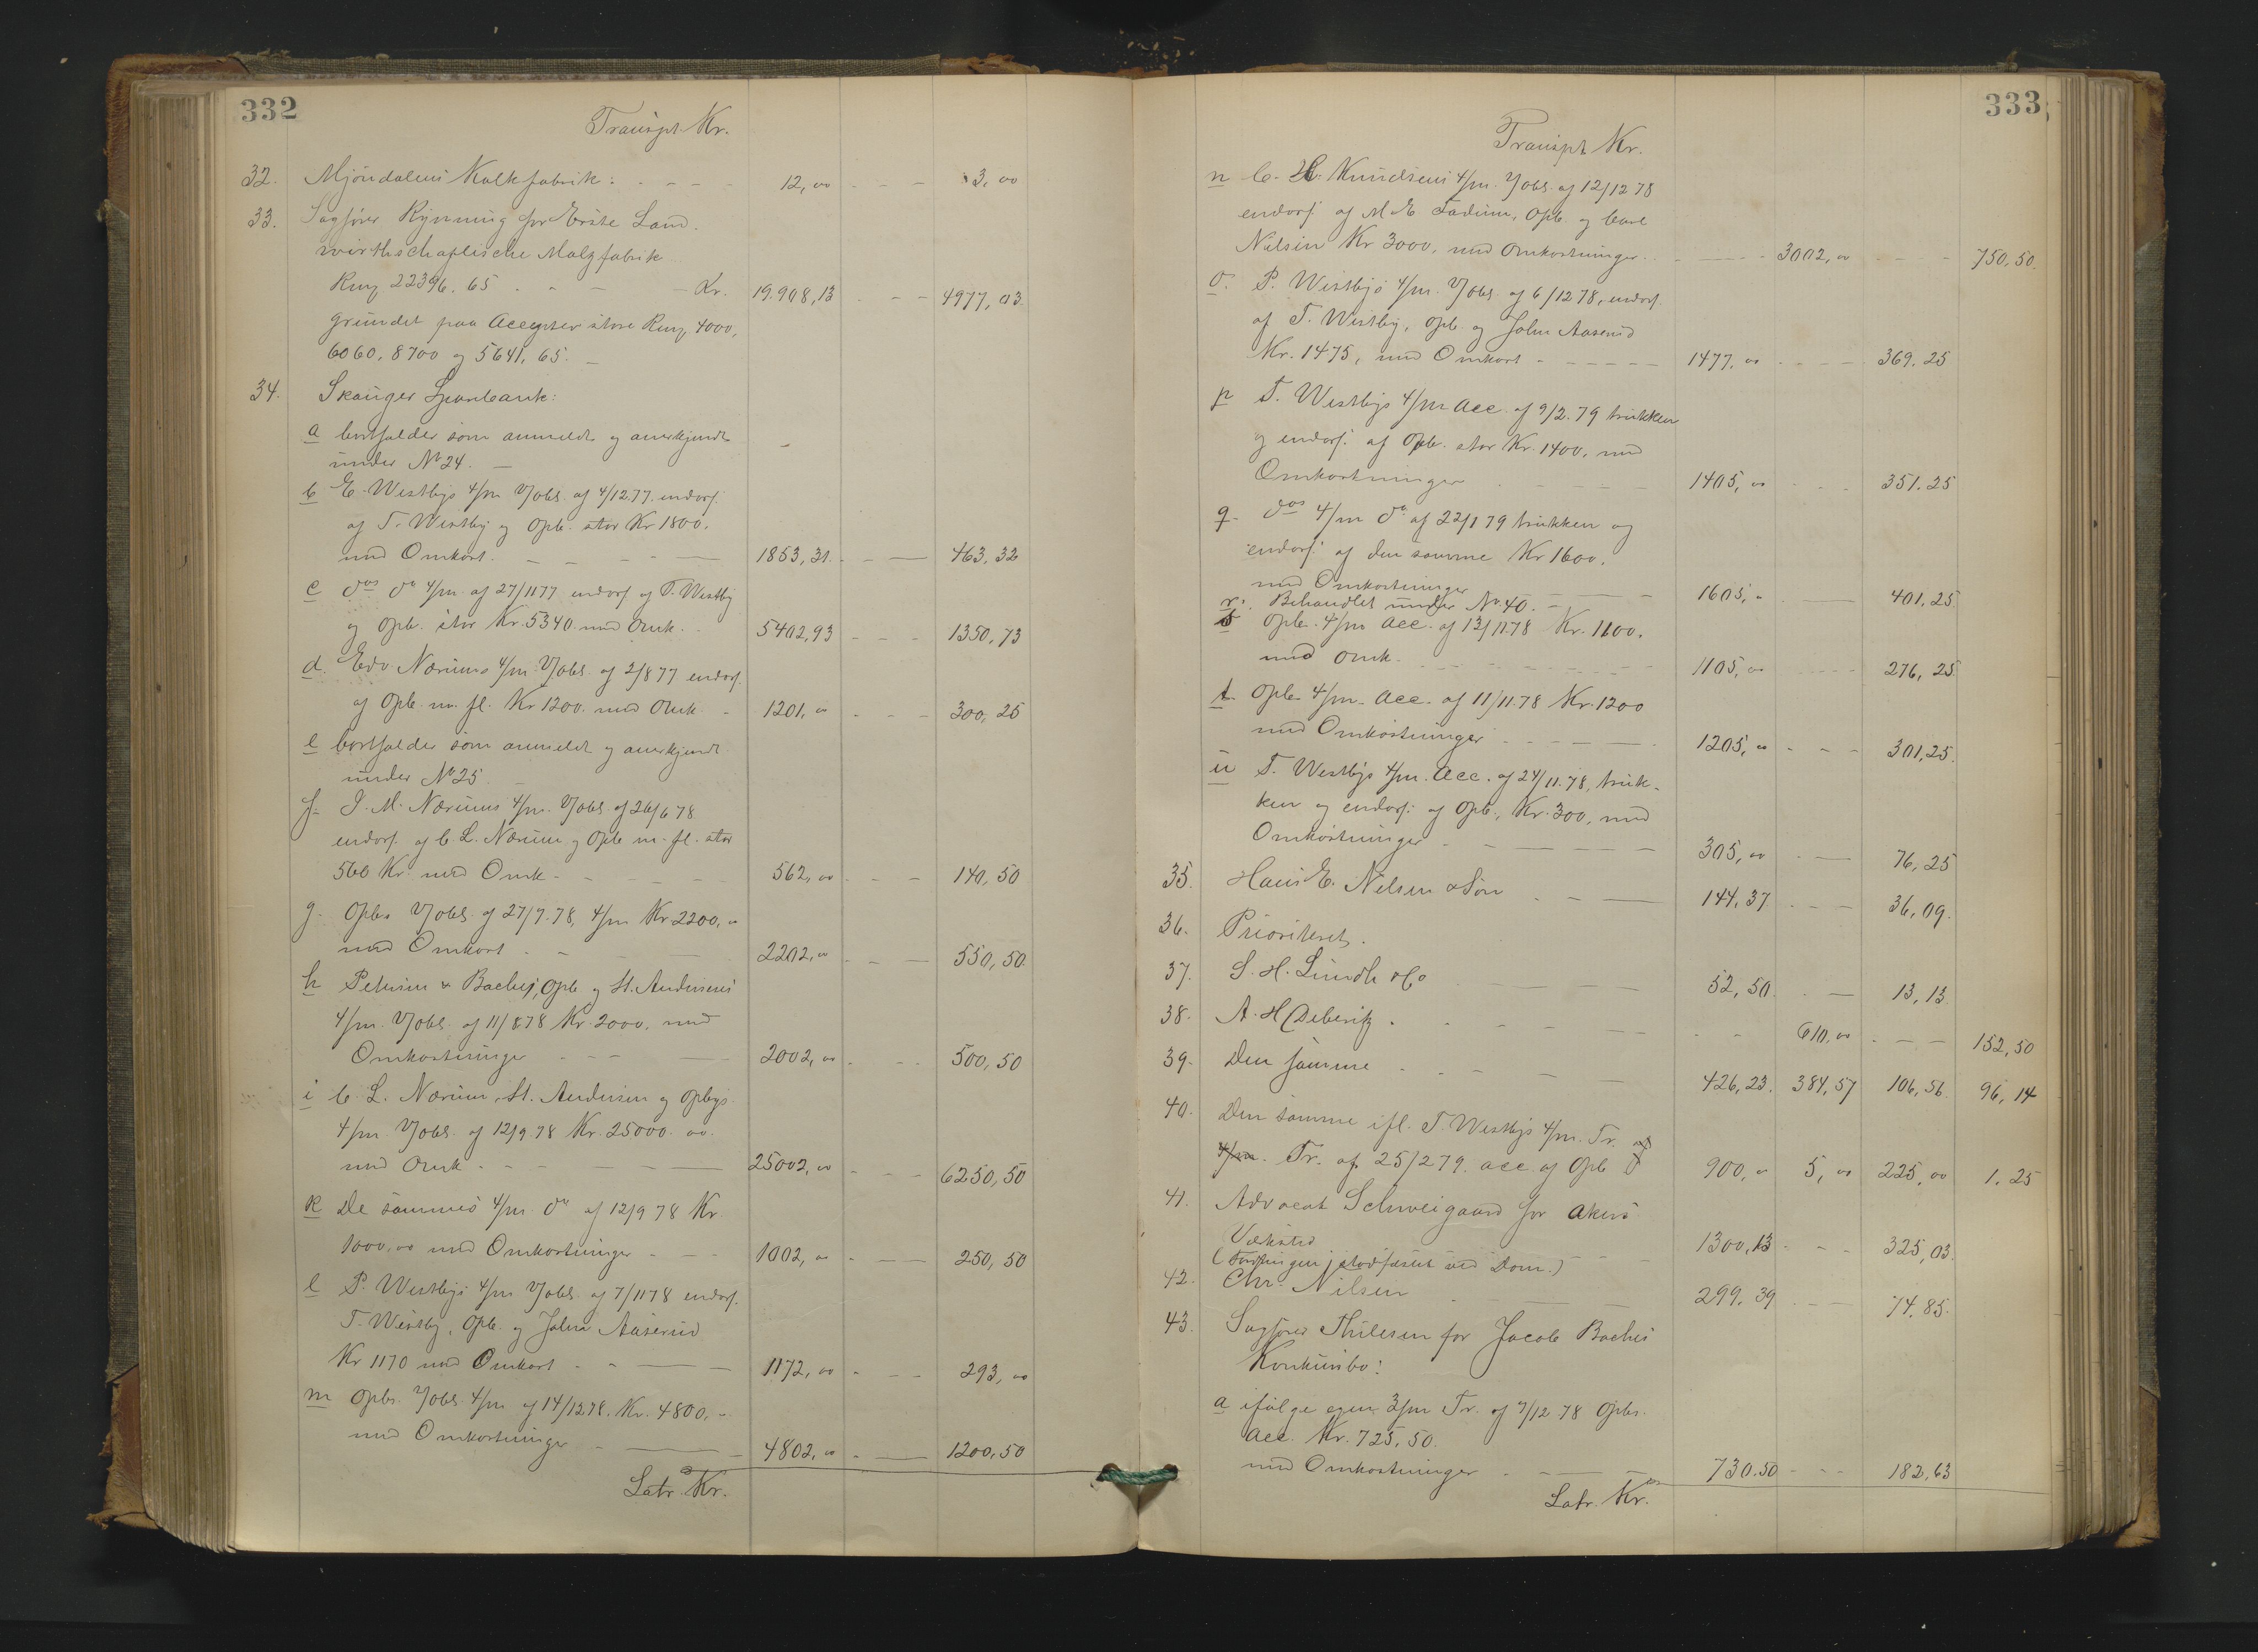 332
Transpt Kr.
32. Mjöndalens Kalkfabrik: 12,00 3,00
33. Sagfører Rynning for Erste Land-
wirthschaftliche Malzfabrik
Rmz 22396.65 Kr. 19.908,13 4977,03
grundet paa Accepter store Rmz 4000,
6060, 8700 og 5641,65.
34. Skauger Sparebank:
a bortfalder som anmeldt og anerkjendt
under No 24.
b E. Westbys 4/m Vobl. af 4/12 77 endorf.
af T. Westby og Opb. stor Kr 1800.
med Omkost. 1853,31 463,32
c dos do 4/m af 27/11 77 endorf. af T. Westby
og Opb. stor Kr. 5340 med Omk. 5402,93 1350,73
d. Edv. Nærums 4/m Vobl. af 2/8 77 endorf.
af Opb. m. fl. Kr 1200. med Omk. 1201,00 300,25
e bortfalder som anmeldt og anerkjendt
under No 25.
f. J. M. Nærums 4/m. Vobl. af 26/6 78
endorf. af C. L. Nærum og Opb m. fl. stor
560 Kr. med Omk. 562,00 140,50
g. Opbs Vobl. af 27/7.78, 4/m Kr 2200,00
med Omkost. 2202,00 550,50
h Petersen & Baches, Opb og St. Andersens
4/m. Vobl. af 11/8 78 Kr. 2000. med
Omkostninger 2002,00 500,50
i C. L. Nærum, St. Andersen og Opbgs
4/m. Vobl. af 12/9 78 Kr. 25000.00.
med Omk. 25002,00 6250,50
k De sammes 4/m do af 12/9 78 Kr.
1000,00 med Omkostninger 1002,00 250,50
l P. Westbys 4/m Vobl. af 7/11 78 endorf.
T. Westby, Opb. og Johan Aaserud
Kr 1170 med Omkost. 1172,00 293,00
m Opbs. Vobl. 4/m af 14/12 78. Kr. 4800,00
med Omkostninger 4802,00 1200,50
Latr. Kr.
333
Transpt Kr.
n C. H. Knudsens 4/m. Vobl. af 12/12 78
endorf. af M E Fadum, Opb. og Carl
Nielsen Kr 3000, med Omkostninger 3002,00 750,50
o. P. Westbys 4/m. Vobl. af 6/12 78, endorf.
af T. Westby, Opb. og Johan Aaserud
Kr. 1475, med Omkost 1477,00 369.25
p T. Westbys 4/m Acc. af 9/2.79 trukken
og endorf. af Opb. stor Kr. 1400, med
Omkostninger 1405,00 351.25
q. dos 4/m do af 22/1 79 trukken og
endorf. af den samme Kr 1600.
med Omkostninger 1605,00 401,25
r. Behandlet under No. 40.
s Opb. 4/m Acc. af 13/11.78 Kr. 1100.
med omk. 1105,00 276,25
t Opb. 4/m. Acc. af 11/11.78 Kr. 1200
med Omkostninger 1205,00 301,25
u T. Westbys 4/m. Acc. af 24/11.78, truk-
ken og endorf. af Opb., Kr. 300, med
Omkostninger 305,00 76,25
35. Hans E. Nielsen & Søn 144,37 36,09
36. Prioriteret.
37. S. H. Lundh & Co 52,50 13,13
38. A. H. Deberitz. 610,00 152,50
39. Den samme 426,23. 384,57 106,56 96,14
40. Den samme ifl. T. Westbys 4/m. Tr. af
4/m. Tr. af 25/2 79. acc. af Opb 900,00 5,00 225,00 1.25
41. Advocat Schweigaard for Akers
Værksted 1300,13 325,03
(Fordringen stadfæstet ved Dom.)
42. Chr. Nilsen 299,39 74,85
43. Sagfører Thulesen for Jacob Baches
Konkursbo:
a ifølge egen 3/m Tr. af 7/12 78 Opbs.
Acc. Kr. 725.50.
med Omkostninger 730.50 182,63
Latr. Kr.